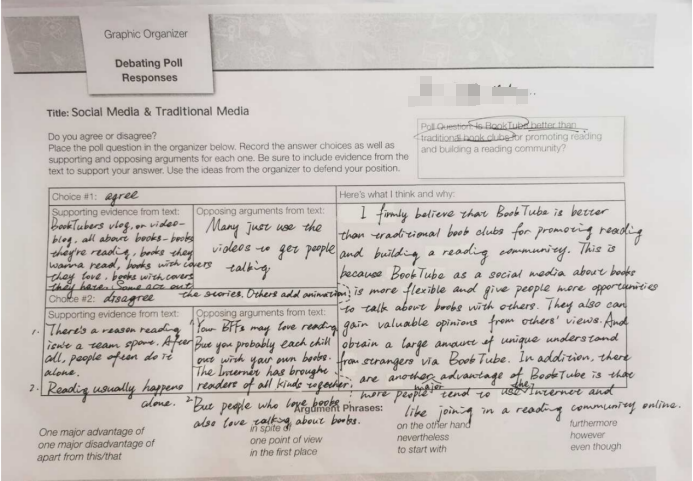 Graphic Organizer
Debating Poll
Responses
Title: Social Media & Traditional Media
Do you agree or disagree?
Place the poll question in the organizer below. Record the answer choices as well as
supporting and opposing arguments for each one. Be sure to include evidence from the
text to support your answer. Use the ideas from the organizer to defend your position.
Poll Question: Is BookTube better than
traditional book clubs for promoting reading
and building a reading community?
Choice #1: agree
Supporting evidence from text:
BookTubers vlog, or video-
blog, all about books-books
they're reading, books they
wanna read, books with covers
they love, books with covers
they hate. Some act out
the stories. Others add animation
Opposing arguments from text:
Many just use the
videos to get people
talking
Choice #2: disagree
Supporting evidence from text:
1. There's a reason reading
isn't a team sport. After
all, people often do it
alone.
2. Reading usually happens
alone.
Opposing arguments from text:
1. Your BFFs may love reading
But you probably each chill
out with your own books.
The Internet has brought
readers of all kinds together.
2. But people who love books
also love talking about books.
Here's what I think and why:
I firmly believe that BookTube is better
than traditional book clubs for promoting reading
and building a reading community. This is
because BookTube as a social media about books
is more flexible and give people more opportunities
to talk about books with others. They also can
gain valuable opinions from others' views. And
obtain a large amount of unique understand
from strangers via BookTube. In addition, there
are another major advantage of BookTube is that
more people tend to use the Internet and
like joining in a reading community online.
Argument Phrases:
One major advantage of
one major disadvantage of
apart from this/that
in spite of
one point of view
in the first place
on the other hand
nevertheless
to start with
furthermore
however
even though